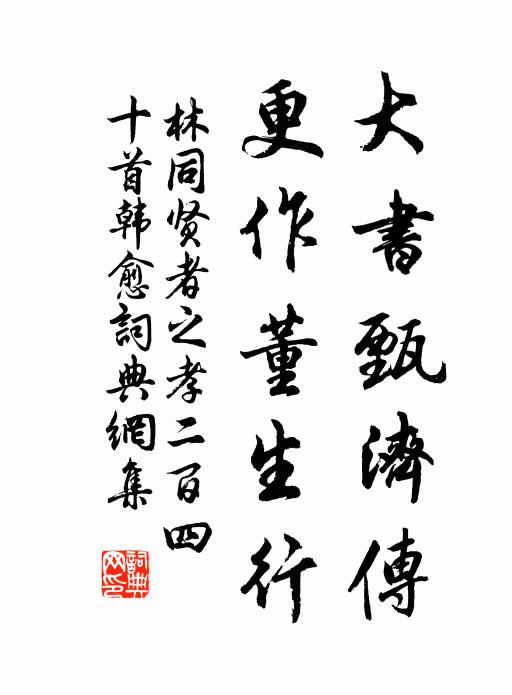 大書甄濟傳
更作董生行
林同贤者之孝二百四
十首韩愈詞典網集
詞典
网印